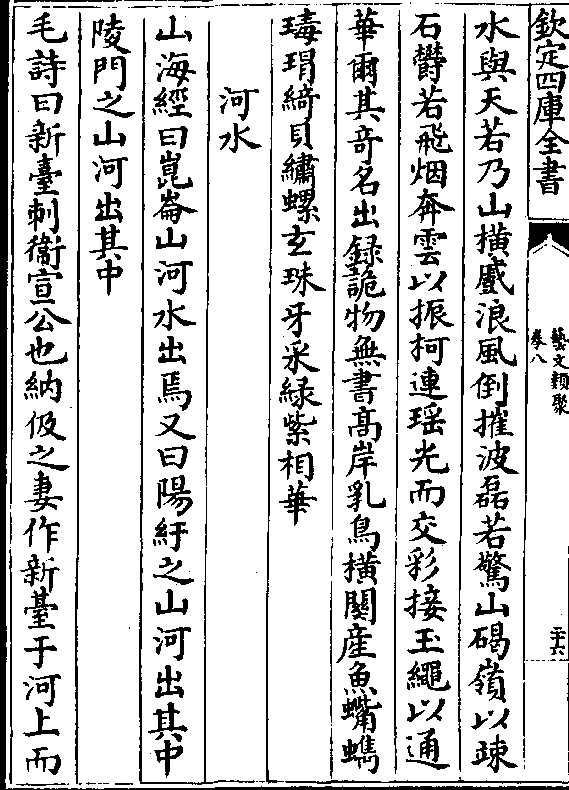 欽定四庫全書
藝文類聚
卷八
二十六
水與天若乃山橫蹙浪風倒摧波磊若驚山碣嶺以竦
石欝若飛烟奔雲以振柯連瑶光而交彩接玉繩以通
華爾其竒名出録詭物無書髙岸乳鳥橫關産魚蠵蠵
瑇瑁綺貝繡螺玄珠牙采緑紫相華
河水
山海經曰崑崙山河水出焉又曰陽紆之山河出其中
陵門之山河出其中
毛詩曰新臺刺衞宣公也納伋之妻作新臺于河上而